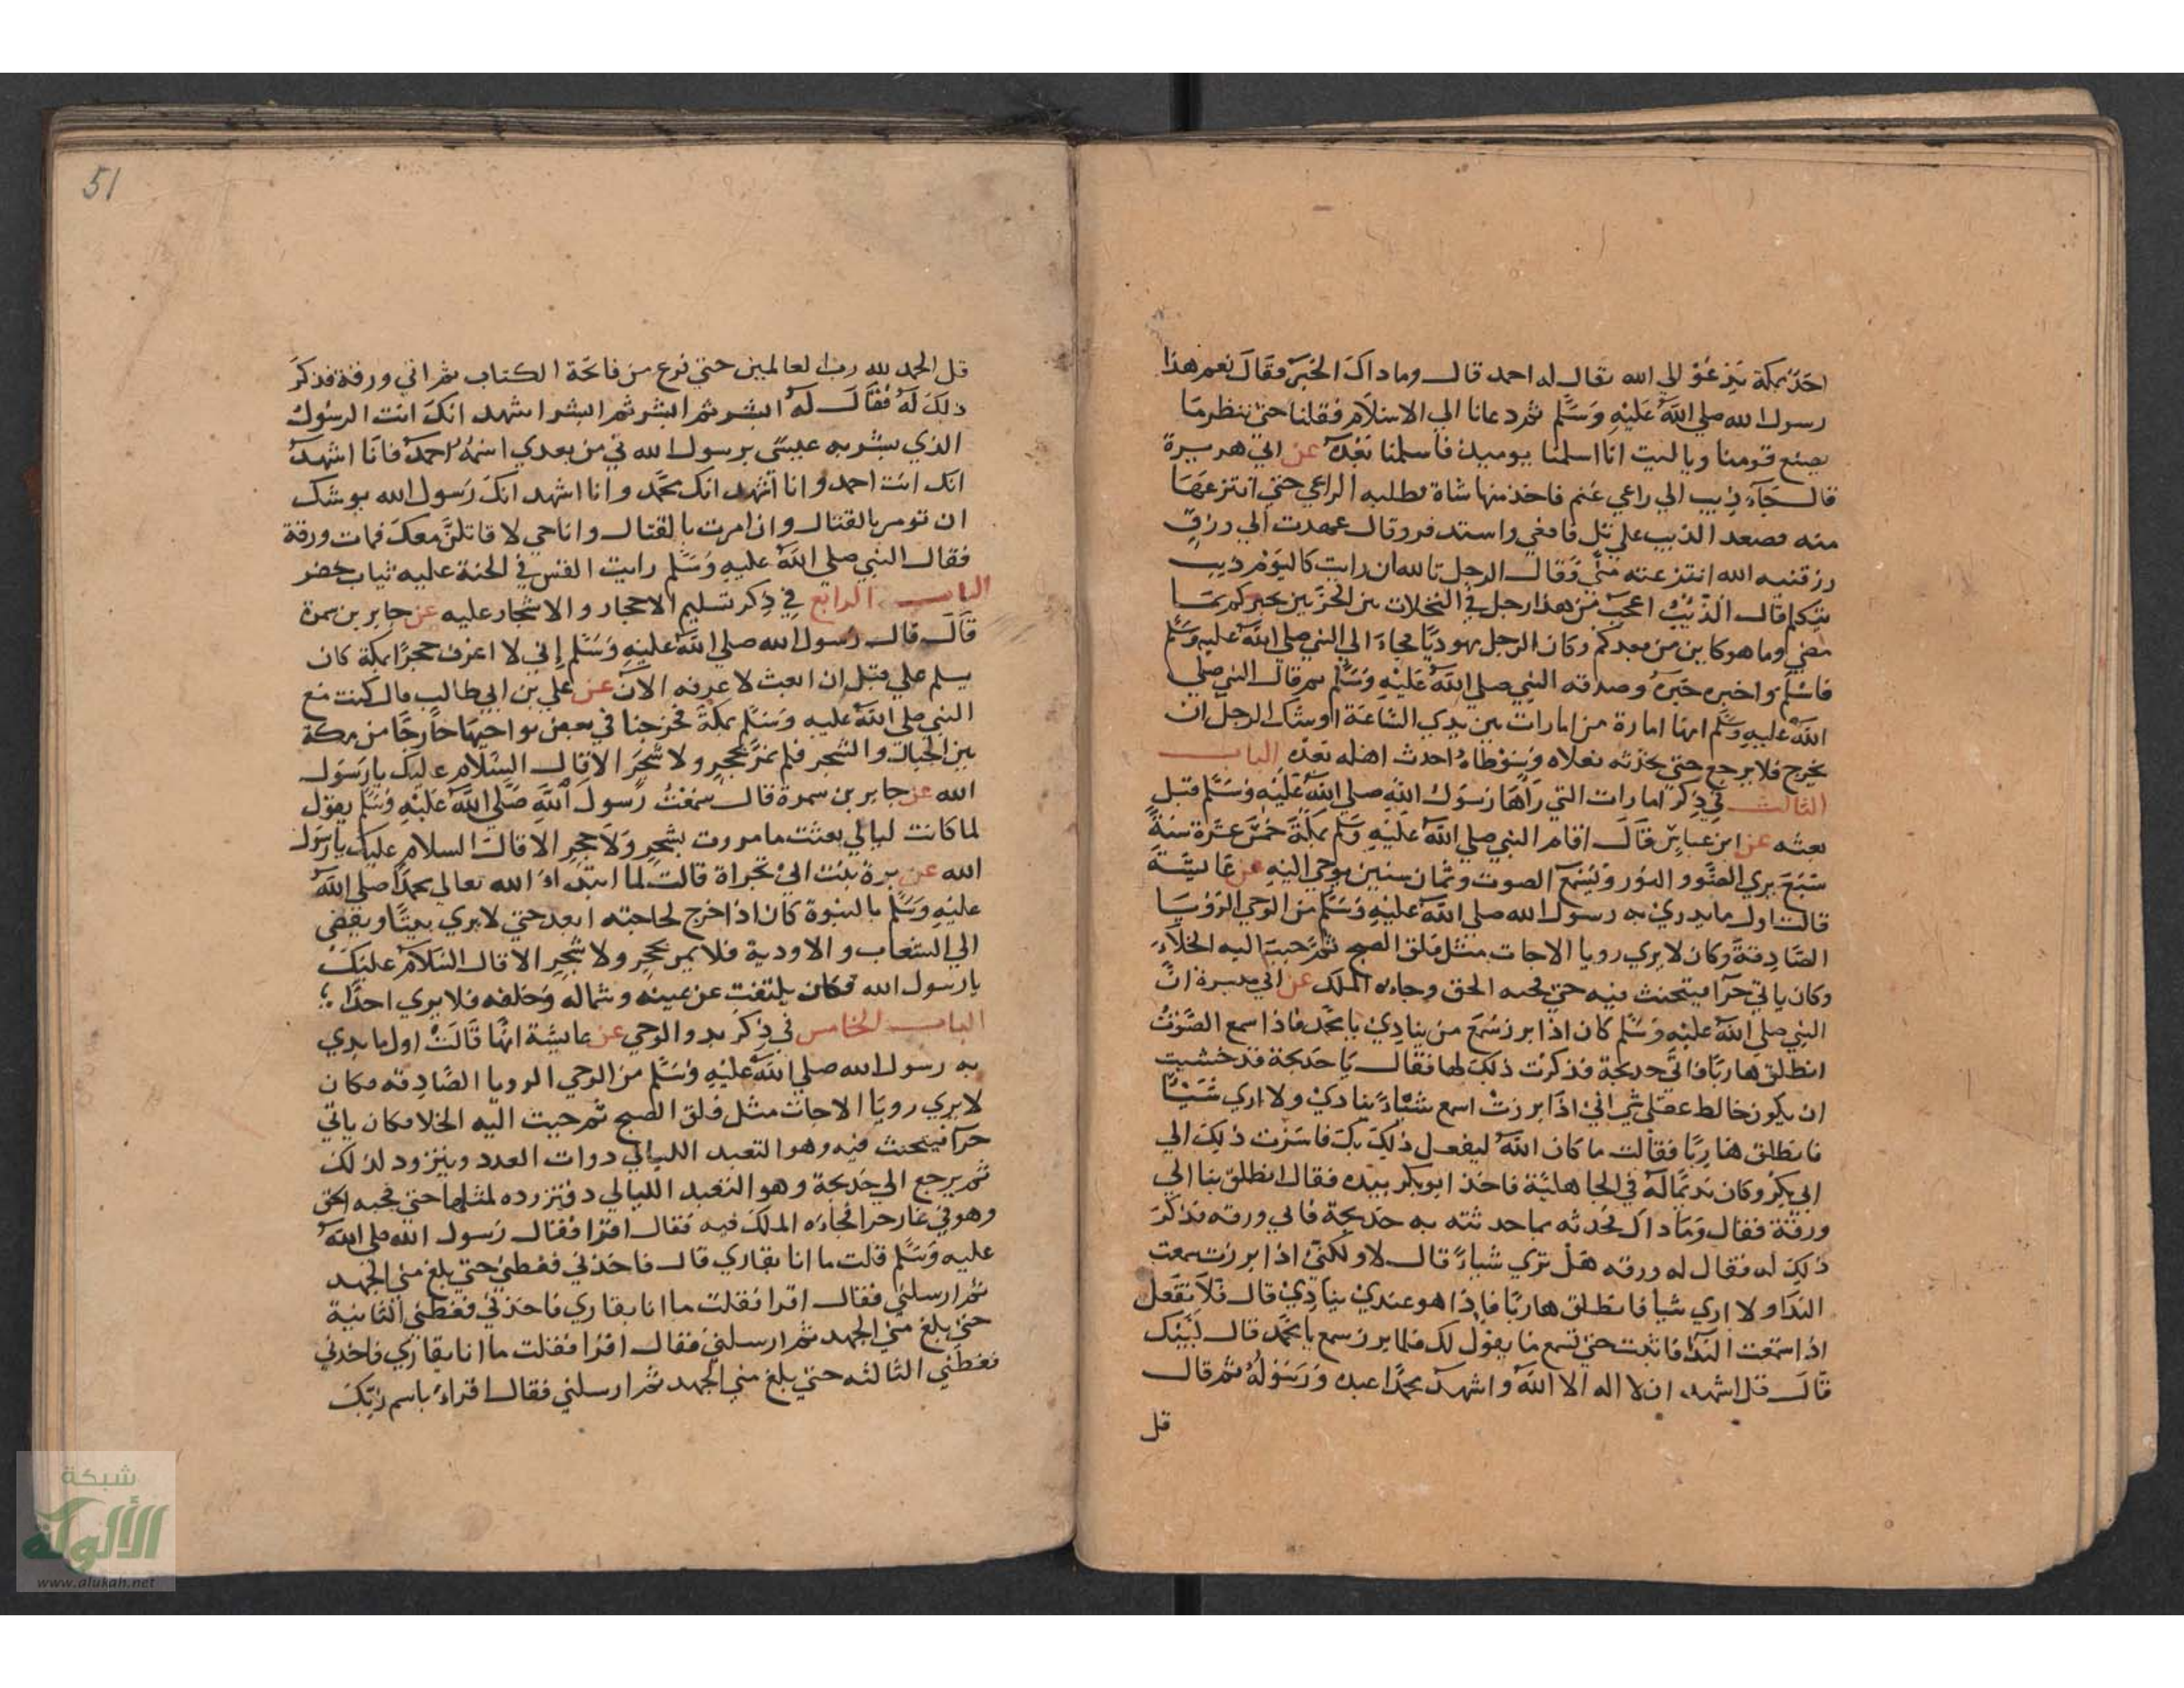 احد بمكة يدعو الي الله يقال له احمد قال وما داك الخبر فقال نعم هذا
رسول الله صلي الله عليه وسلم ثم دعانا الي الاسلام فقلنا حتي ننظر ما
يصنع قومنا ويا ليت انا اسلمنا يوميذ فاسلمنا بعده عن ابي هريرة
قال جآء ذيب الي راعي غنم فاخذ منها شاة فطلبه الراعي حتي انتزعها
منه فصعد الذيب علي تل فاقعي واستدفر وقال عمدت الي رزق
رزقنيه الله انتزعته مني فقال الرجل تالله ان رايت كاليوم ذيب
يتكلم قال الذئب اعجب من هذا رجل في النخلات بين الحرتين يخبركم بما
مضي وما هو كاين من بعدكم وكان الرجل يهوديا فجاء الي النبي صلي الله عليه وسلم
فاسلم واخبره خبره وصدقه النبي صلي الله عليه وسلم ثم قال النبي صلي
الله عليه وسلم انها امارة من امارات بين يدي الساعة اوشك الرجل ان
يخرج فلا يرجع حتي يحدثه نعلاه وسوطه احدث اهله بعده الباب
الثالث في ذكر امارات التي رآها رسول الله صلي الله عليه وسلم قبل
بعثه عن ابن عباس قال اقام النبي صلي الله عليه وسلم بمكة خمس عشرة سنة
سبع يري الضوء والنور ويسمع الصوت وثمان سنين يوحي اليه عن عايشة
قالت اول ما بدي به رسول الله صلي الله عليه وسلم من الوحي الرؤيا
الصادقة وكان لا يري رويا الا جات مثل فلق الصبح ثم حبب اليه الخلاء
وكان ياتي حرآ فيتحنث فيه حتي فجيه الحق وجاءه الملك عن ابي ميسرة ان
النبي صلي الله عليه وسلم كان اذا برز سمع من ينادي يا محمد فاذا سمع الصوت
انطلق هاربا فاتي خديجة فذكرت ذلك لها فقال يا خديجة قد خشيت
ان يكون خالط عقلي شي اني اذا برزت اسمع شيا ينادي ولا اري شيئا
فانطلق هاربا فقالت ما كان الله ليفعل ذلك بك فاسرت ذلك الي
ابي بكر وكان نديما له في الجاهلية فاخذ ابو بكر بيده فقال انطلق بنا الي
ورقة فقال وما داك فحدثه بما حدثته به خديجة فاتي ورقه فذكر
ذلك له فقال له ورقه هل تري شيا قال لا ولكني اذا برزت سمعت
الندا ولا اري شيا فانطلق هاربا فاذا هو عندي ينادي قال فلا تفعل
اذا سمعت الندآ فاثبت حتي تسمع ما يقول لك فلما برز سمع يا محمد قال لبيك
قال قل اشهد ان لا اله الا الله واشهد محمدا عبده ورسوله ثم قال
قل
51
قل الحمد لله رب العالمين حتي فرغ من فاتحة الكتاب ثم اتي ورقة فذكر
ذلك له فقال له ابشر ثم ابشر ثم ابشر اشهد انك انت الرسول
الذي بشر به عيسي برسول الله تي من بعدي اسمه احمد فانا اشهد
انك انت احمد وانا اشهد انك محمد وانا اشهد انك رسول الله يوشك
ان تومر بالقتال وان امرت بالقتال وانا حي لا قاتلن معك فمات ورقة
فقال النبي صلي الله عليه وسلم رايت القس في الجنة عليه ثياب خضر
الباب الرابع في ذكر تسليم الاحجار والاشجار عليه عن جابر بن سمرة
قال قال رسول الله صلي الله عليه وسلم اني لا اعرف حجرا بمكة كان
يسلم علي قبل ان ابعث لا عرفه الآن عن علي بن ابي طالب قال كنت مع
النبي صلي الله عليه وسلم بمكة فخرجنا في بعض نواحيها خارجا من مكة
بين الجبال والشجر فلم نمر بحجر ولا شجر الا قال السلام عليك يا رسول
الله عن جابر بن سمرة قال سمعت رسول الله صلي الله عليه وسلم يقول
لما كانت ليالي بعثت ما مررت بشجر ولا حجر الا قال السلام عليك يا رسول
الله عن برة بنت ابي تجراة قالت لما ابتداء الله تعالي محمدا صلي الله
عليه وسلم بالنبوة كان اذا خرج لحاجته ابعد حتي لا يري بيتا ويفضي
الي الشعاب والاودية فلا يمر بحجر ولا شجر الا قال السلام عليك
يا رسول الله فكان يلتفت عن يمينه وشماله وخلفه فلا يري احدا
الباب الخامس في ذكر بدو الوحي عن عايشة انها قالت اول ما بدي
به رسول الله صلي الله عليه وسلم من الوحي الرويا الصادقه فكان
لا يري رويا الا جات مثل فلق الصبح ثم حببت اليه الخلا فكان ياتي
حرآ فيتحنث فيه وهو التعبد الليالي دوات العدد ويتزود لذلك
ثم يرجع الي خديجة وهو التعبد الليالي دفتزرده لمثلها حتي فجيه الحق
وهو في غار حرا فجاءه الملك فيه فقال اقرا فقال رسول الله صلي الله
عليه وسلم قلت ما انا بقاري قال فاخذني فغطني حتي بلغ مني الجهد
ثم ارسلني فقال اقرا فقلت ما انا بقاري فاخذني فغطني الثانية
حتي بلغ مني الجهد ثم ارسلني فقال اقرا فقلت ما انا بقاري فاخذني
فغطني الثالثه حتي بلغ مني الجهد ثم ارسلني فقال اقراء باسم ربك
شبكة
الألوكة
www.alukah.net